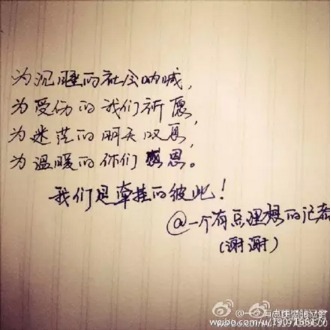 为沉睡的社会呐喊，
为受伤的我们祈愿，
为迷茫的明天叹息，
为温暖的你们感恩。
我们是牵挂的彼此！
@一个有点理想的记者
(谢谢)